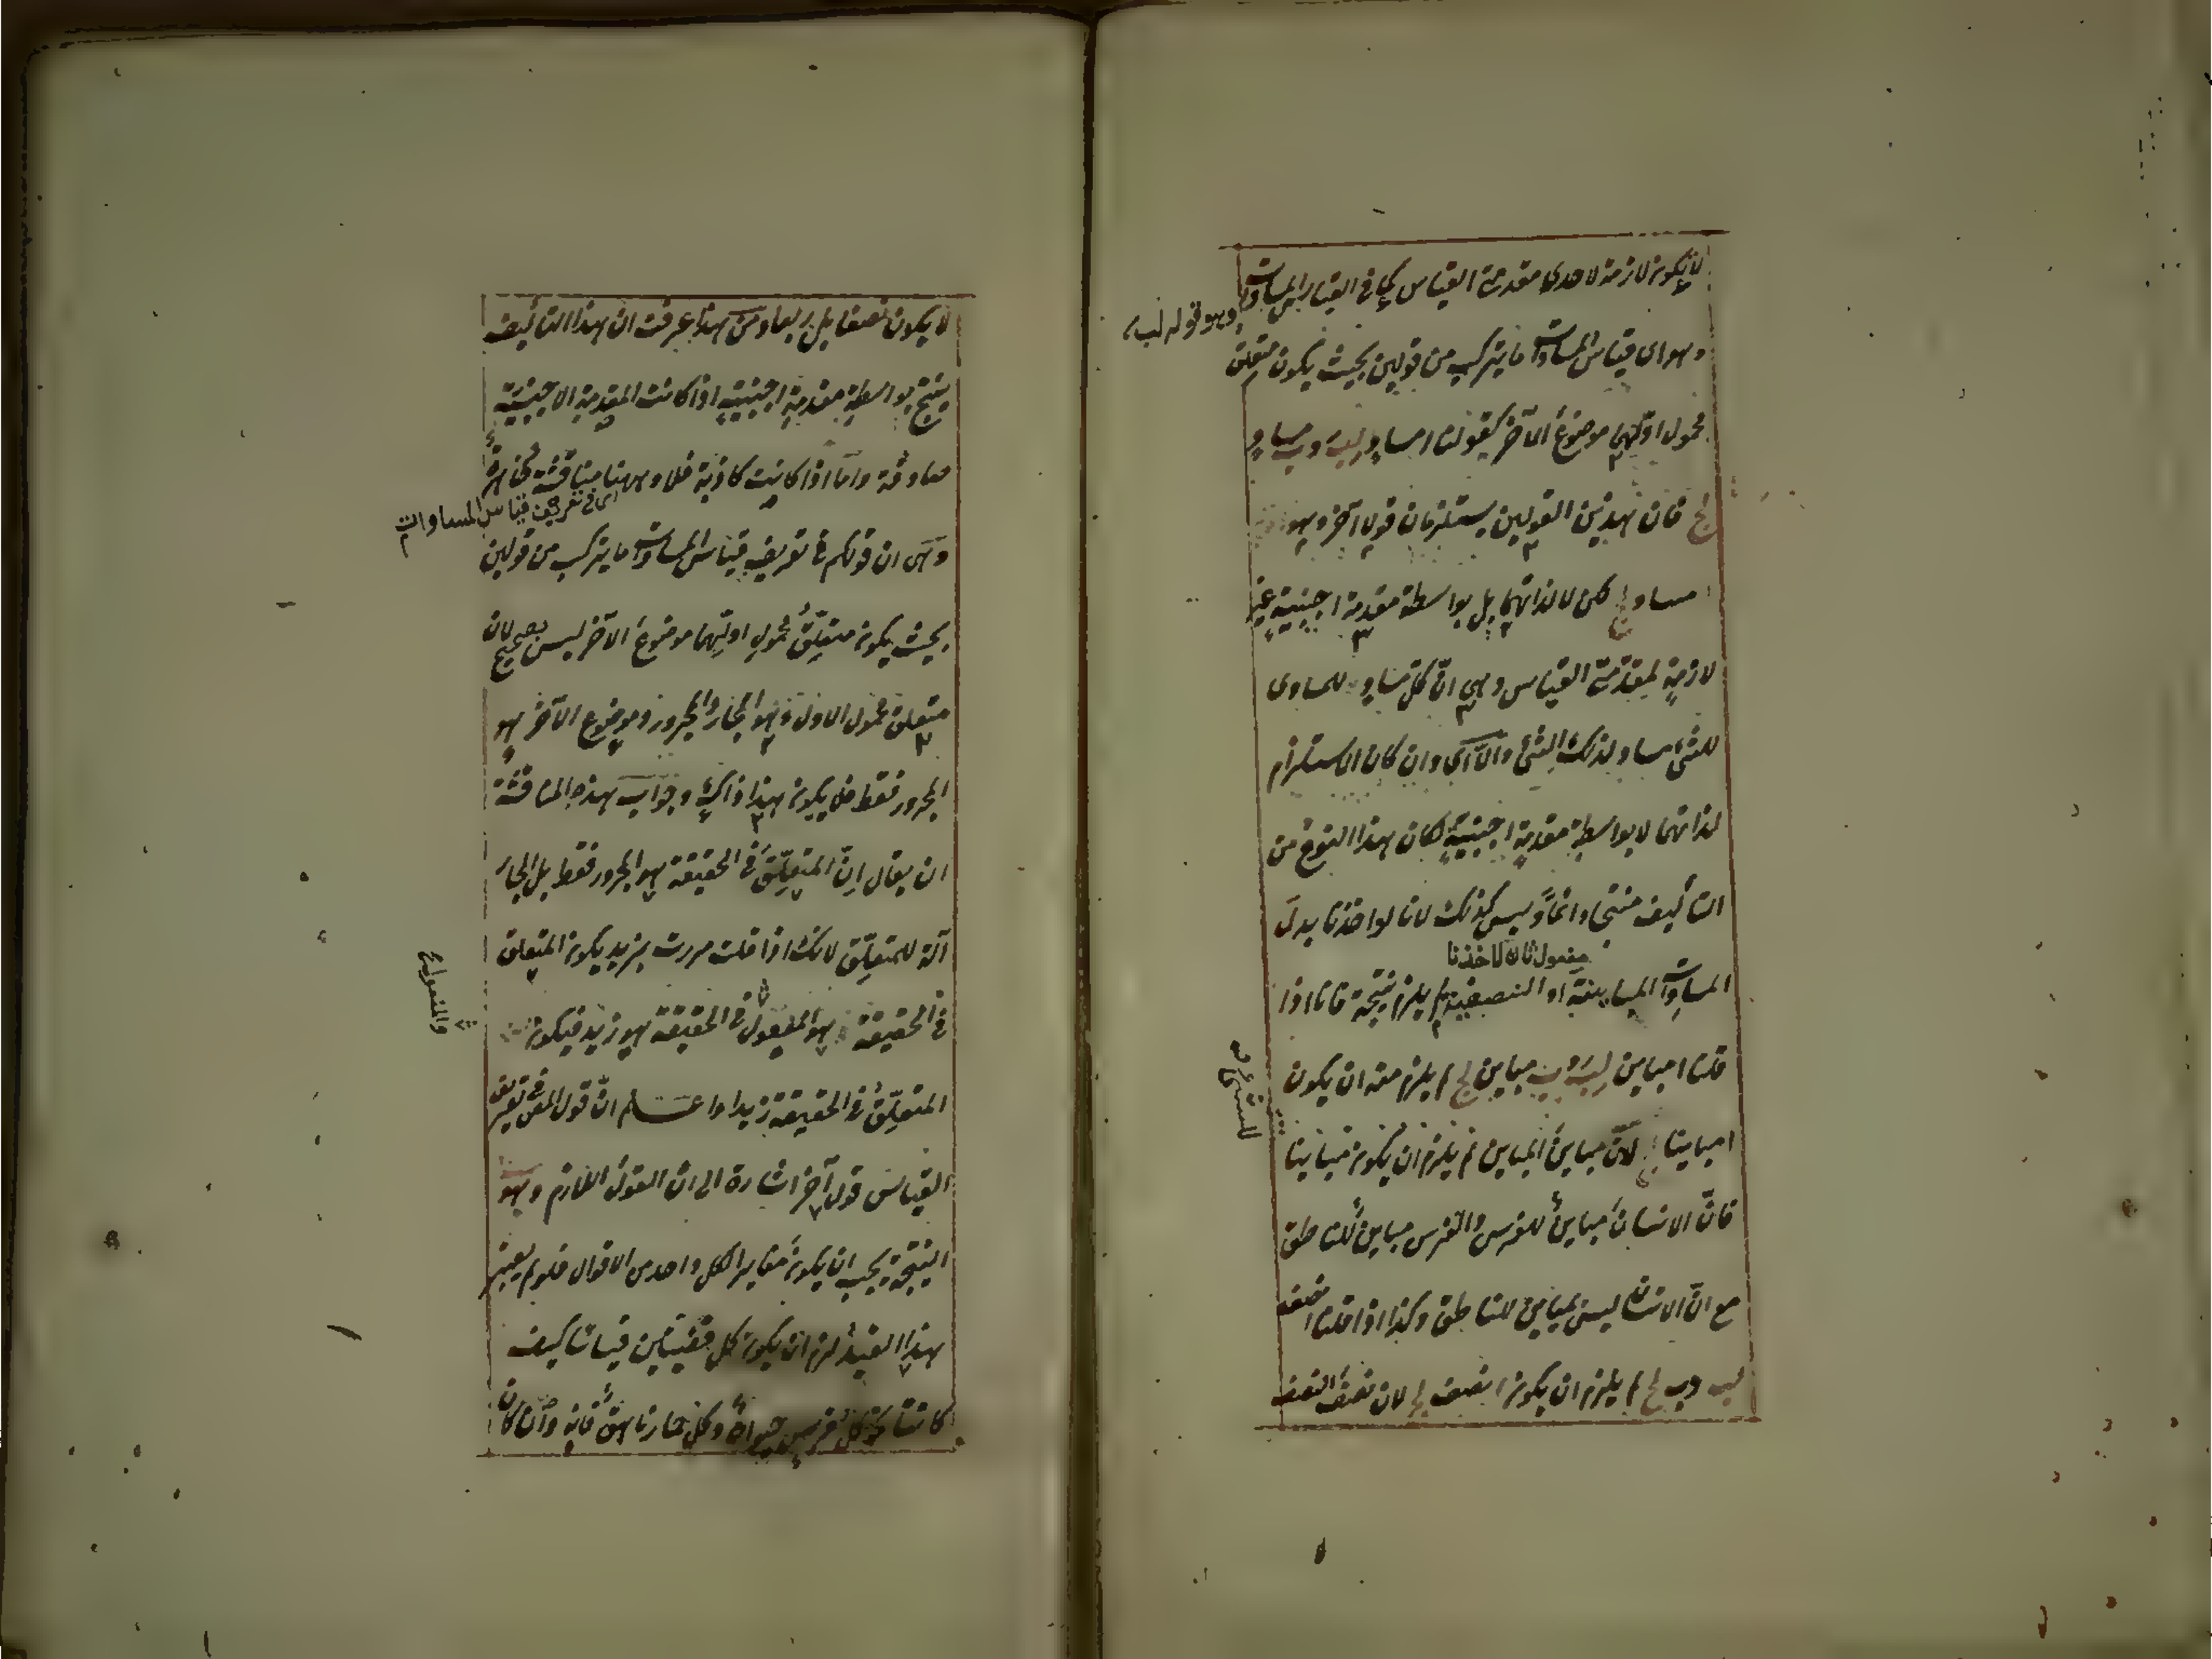 لا يكون لازمة لاحدى مقدمتى القياس كما فى القياس المساوات
وهو قوله لب
وهو اى قياس المساوات ما يتركب من قولين بحيث يكون متعلق
محمول اولهما موضوع الآخر كقولنا ا مساو لب وب مساو
لج فان هذين القولين يستلزمان قولا آخر وهو
ا مساو لج لكن لا لذاتهما بل بواسطة مقدمة اجنبية غير
لازمة لمقدمتى القياس وهى ان كل مساو للمساوى
للشئ مساو لذلك الشئ والا اى وان كان الاستلزام
لذاتهما لا بواسطة مقدمة اجنبية لكان هذا النوع من
التأليف منتجا دائما وليس كذلك لانا لو اخذنا بدل
مفعول ثان لاخذنا
المساوات المباينة او النصفية لم يلزم نتيجة فانا اذا
قلنا ا مباين لب وب مباين لج لم يلزم منه ان يكون
ا مباينا لج لان مباين المباين لم يلزم ان يكون مباينا
فان الانسان مباين للفرس والفرس مباين للناطق
مع ان الانسان ليس بمباين للناطق وكذا اذا قلنا ا نصف
لب وب لج لم يلزم ان يكون ا نصف لج لان نصف النصف
لا يكون نصفا بل ربعا ومن هذا عرفت ان هذا التأليف
ينتج بواسطة مقدمة اجنبية اذا كانت المقدمة الاجنبية
صادقة واما اذا كانت كاذبة فلا وههنا مناقشة
اى فى تعريف قياس المساوات
وهى ان قولكم فى تعريف قياس المساوات ما يتركب من قولين
بحيث يكون متعلق محمول اولهما موضوع الآخر ليس بصحيح لان
متعلق محمول الاول هو الجار والمجرور وموضوع الآخر هو
المجرور فقط فلا يكون هذا ذاك وجواب هذه المناقشة
ان يقال ان المتعلق فى الحقيقة هو المجرور فقط بل الجار
آلة للمتعلق لانك اذا قلت مررت بزيد يكون المتعلق
فى الحقيقة هو المفعول فى الحقيقة هو زيد فيكون
والمفعول
المتعلق فى الحقيقة زيدا واعلم ان قول المص فى تعريف
القياس قول آخر اشارة الى ان القول اللازم وهو
النتيجة يجب ان يكون مغايرا لكل واحد من الاقوال فلو لم يعتبر
هذا القيد لزم ان يكون كل قضيتين قياسا كيف
كانتا نحو كل فرس حيوان وكل حمار ناهق فانه وان كان